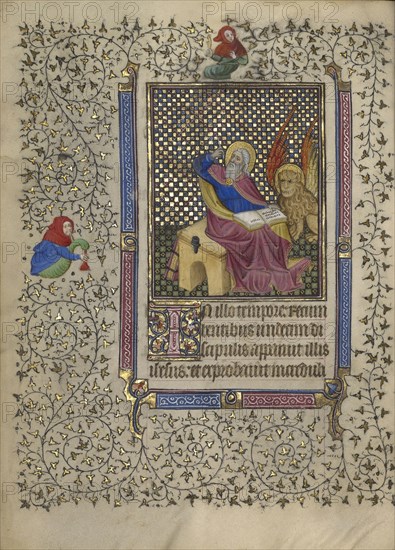 In illo tempore Recum
bentibus undecim di
scipulis apparuit illis
ihesus. et exprobavit incredul